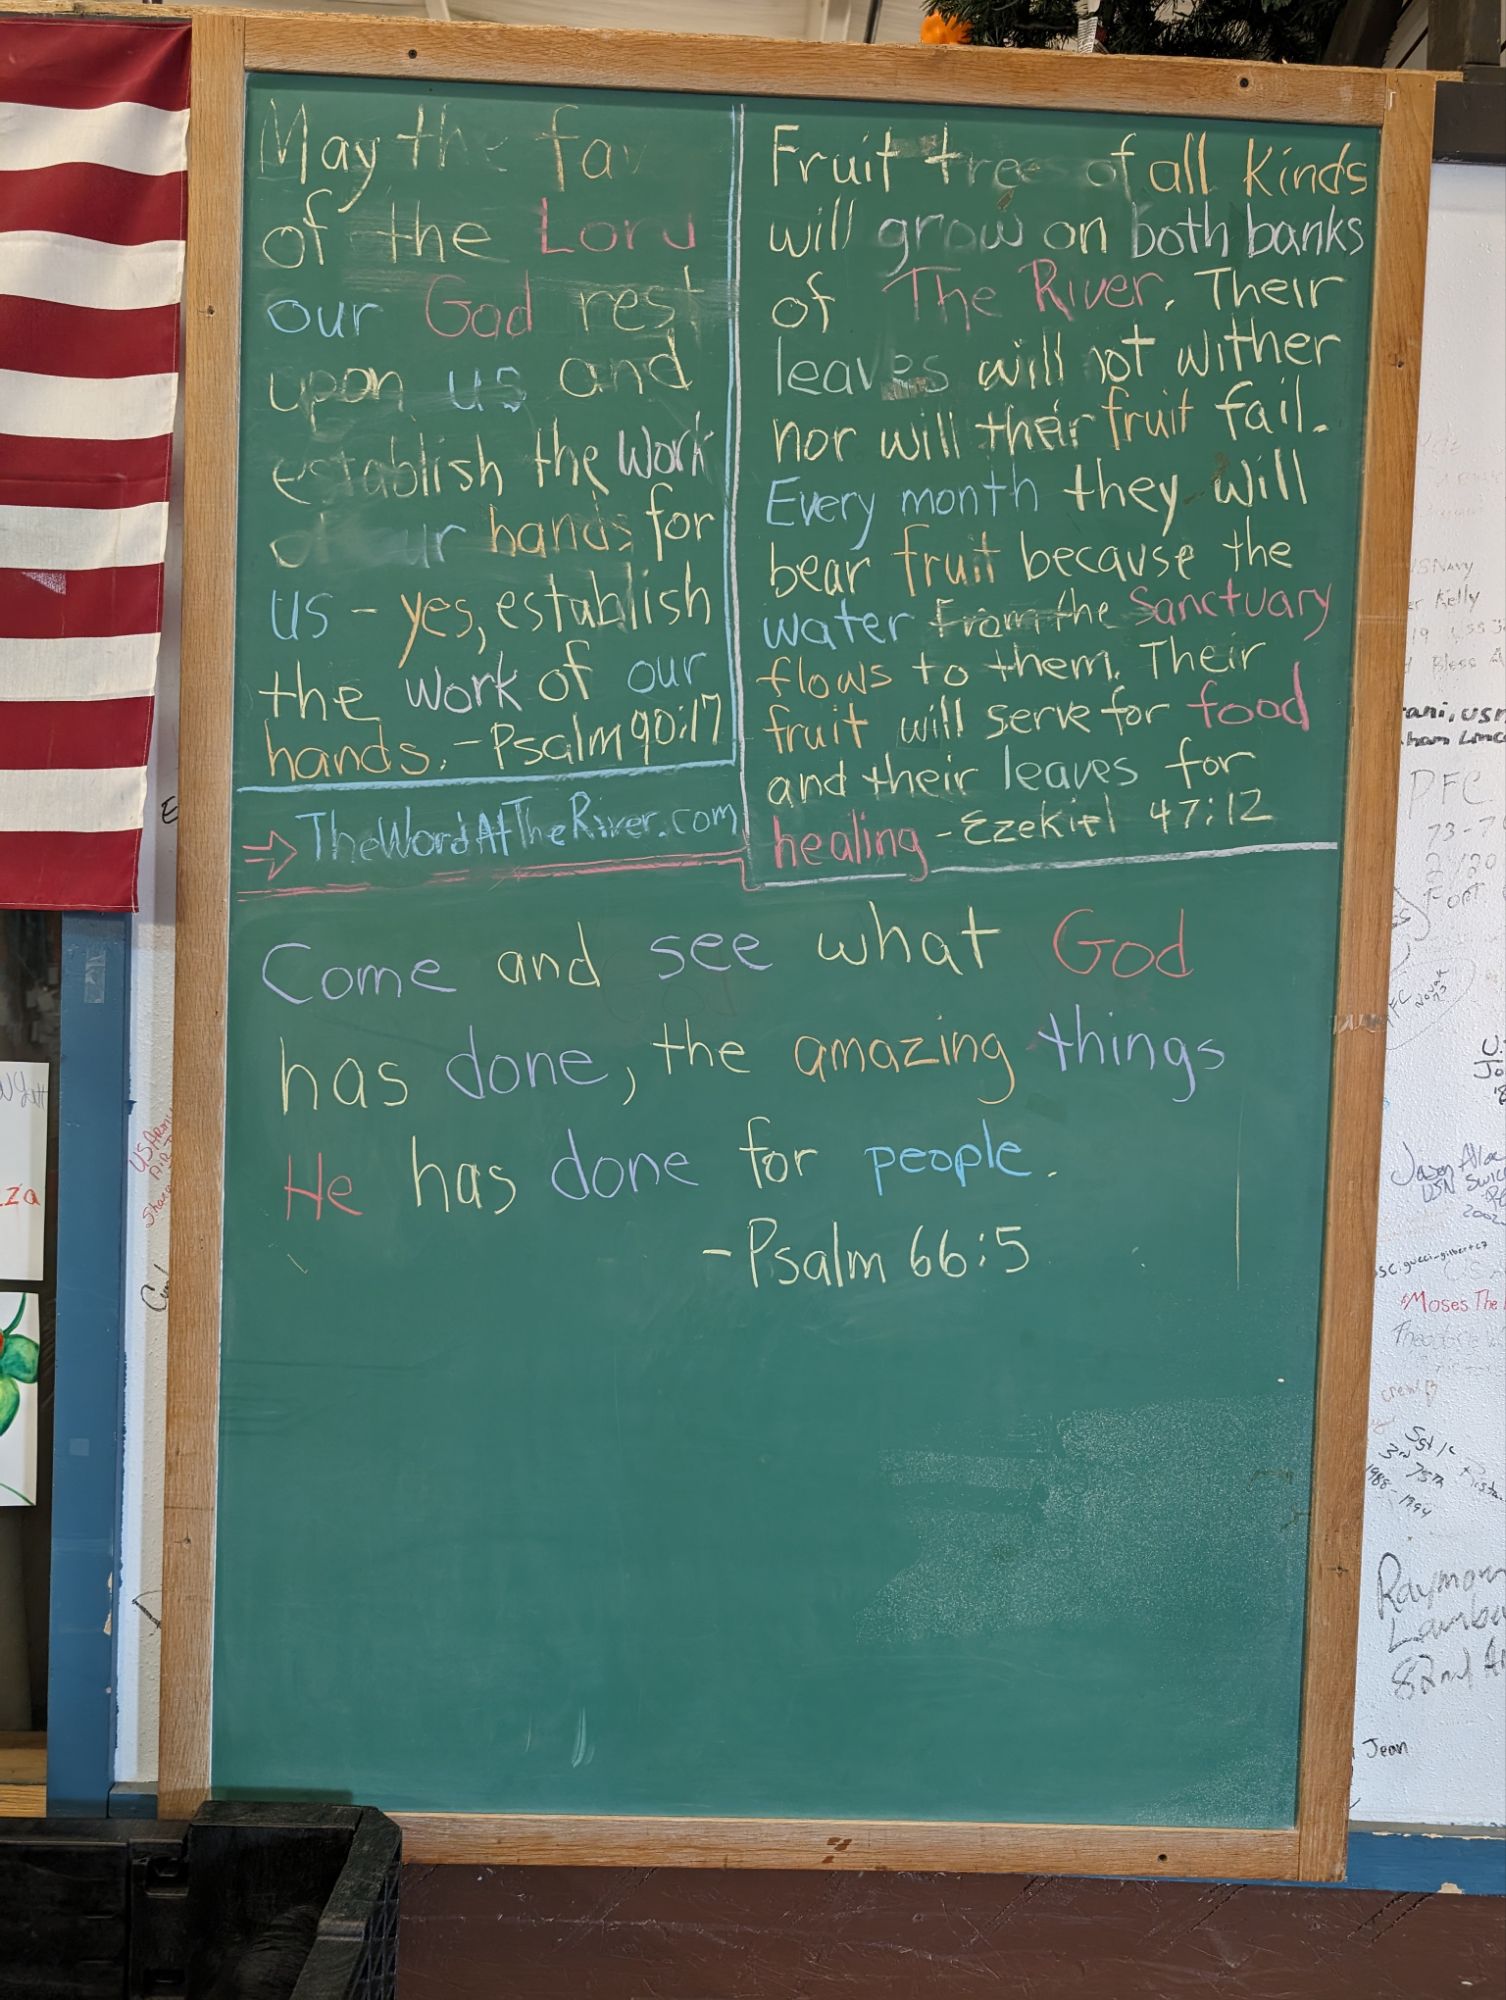 May the fa
of the Lord
our God rest
upon us and
establish the work
of our hands for
us - yes, establish
the work of our
hands. - Psalm 90:17
TheWordAtTheRiver.com
Fruit trees of all kinds
will grow on both banks
of The River. Their
leaves will not wither
nor will their fruit fail.
Every month they will
bear fruit because the
water from the Sanctuary
flows to them. Their
fruit will serve for food
and their leaves for
healing - Ezekiel 47:12
Come and see what God
has done, the amazing things
He has done for people.
- Psalm 66:5
Kelly
PFC
Moses The
1988-1994
82nd
Jean